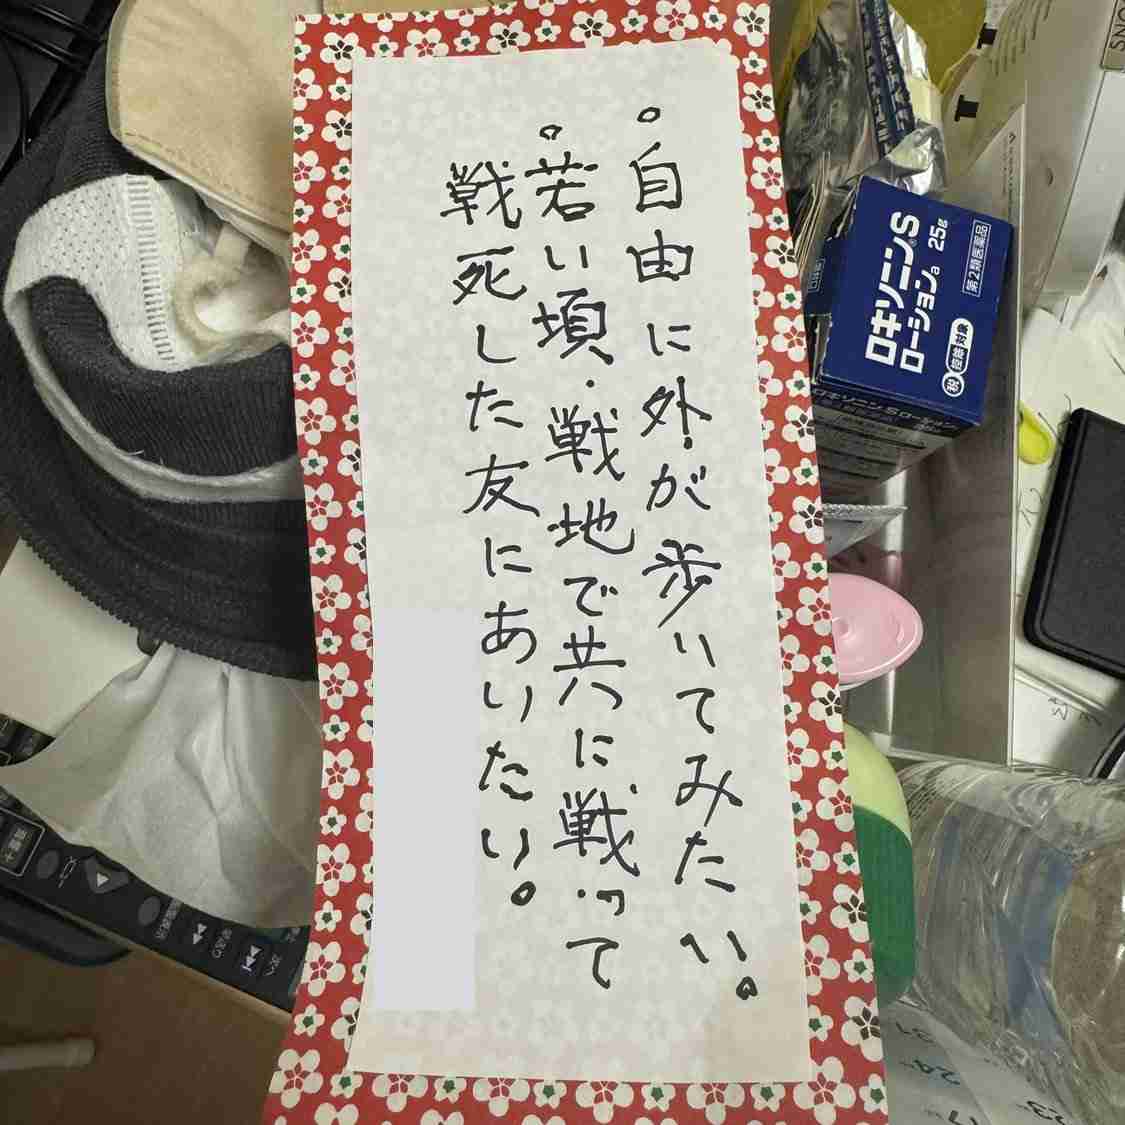 。自由に外が歩いてみたい。
。若い頃・戦地で共に戦って
戦死した友にあいたい。
ロキソニン®S
ローションa 25g
第2類医薬品
ロキソニンSローション
24
23
17
31